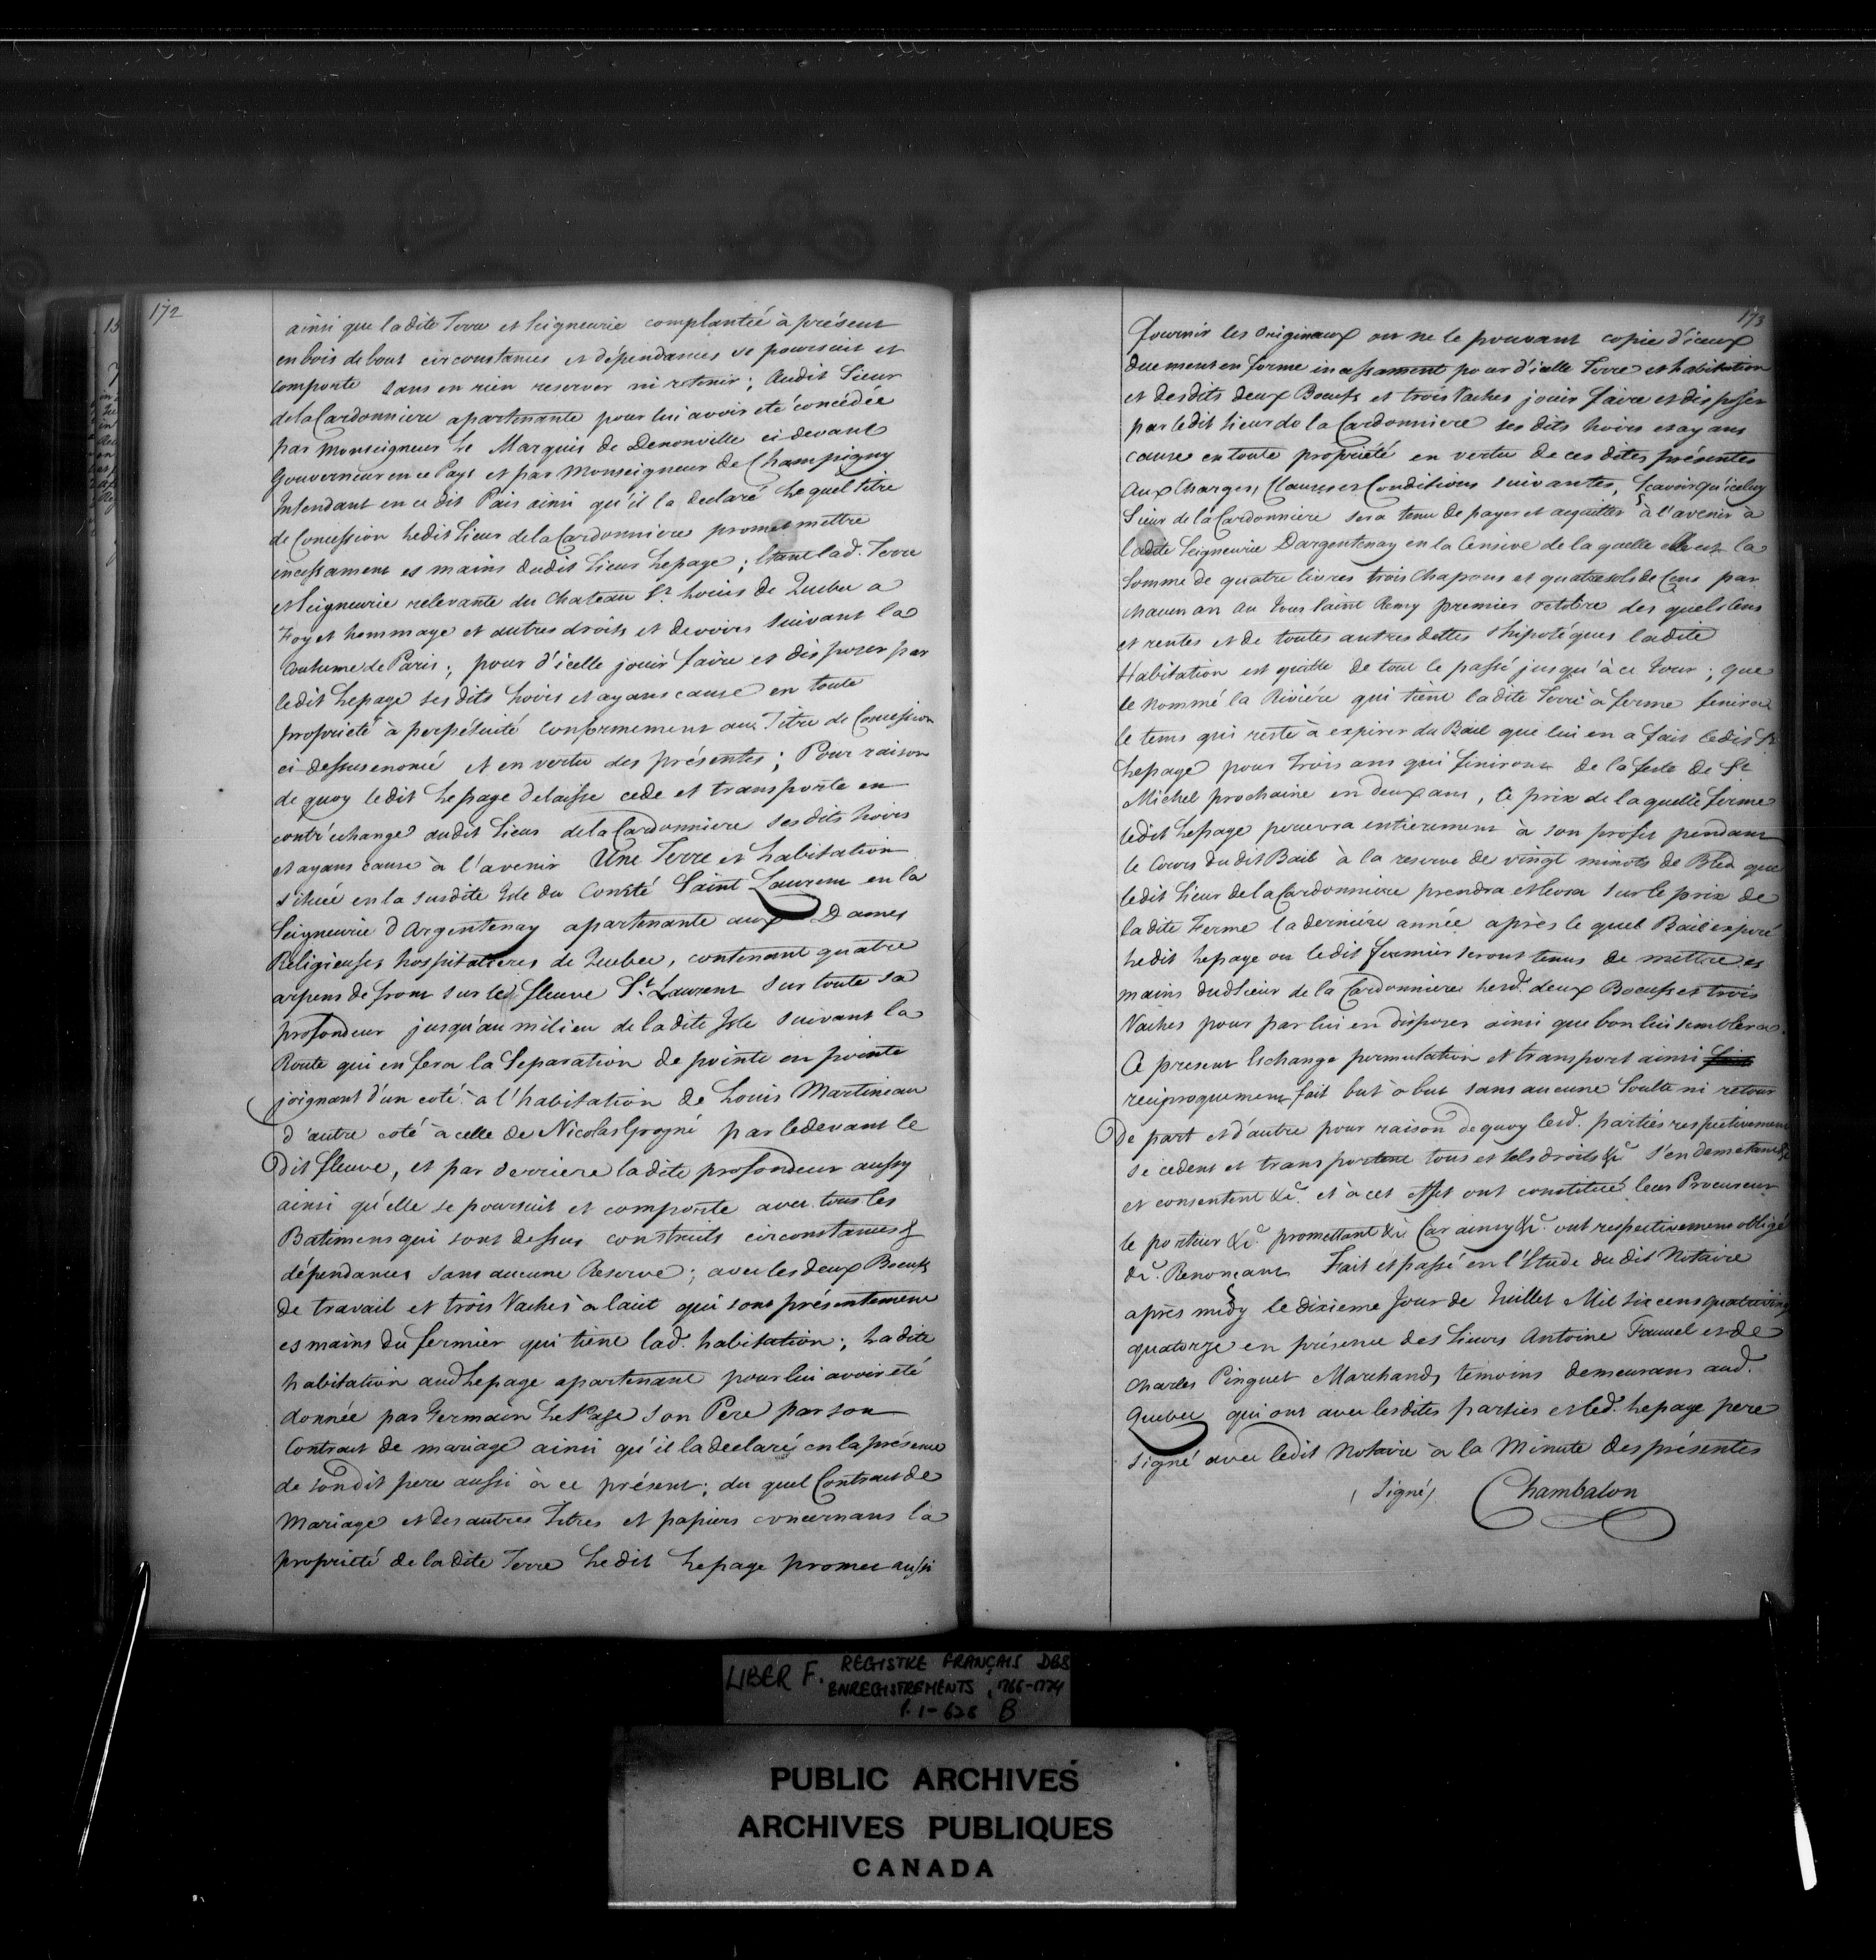 172
ainsi que ladite Terre et Seigneurie complantée à présent
en bois debout circonstances et dépendances se poursuit et
comporte sans en rien reserver ni retenir; Audit Sieur
de la Cardonniere apartenante pour lui avoir été concédée
par Monseigneur Le Marquis de Denonville ci devant
Gouverneur en ce Pays et par Monseigneur de Champigny
Intendant en ce dit Pais ainsi qu'il la declaré Lequel titre
de Concession Ledit Sieur de la Cardonniere promet mettre
incessament es mains dudit Sieur Lepage; Etant lad. Terre
et Seigneurie relevante du Chateau St. Louis de Quebec a
Foy et hommage et autres droits et devoirs suivant la
Coutume de Paris; pour d'icelle jouir faire et disposer par
ledit Lepage ses dits hoirs et ayans cause en toute
propriété à perpétuité conformement aux Titre de Concession
ci-dessus enoncé et en vertu des présentes; Pour raison
de quoy ledit Lepage delaisse cede et transporte en
contr'echange audit Sieur de la Cardonniere ses dits hoirs
et ayans cause à l'avenir Une Terre et habitation
située en la susdite Isle du Comté Saint Laurent en la
Seigneurie d'Argentenay apartenante aux Dames
Religieuses hospitalieres de Quebec, contenant quatre
arpens de front sur le fleuve St. Laurent sur toute sa
profondeur jusqu'au milieu de ladite Isle suivant la
Route qui en fera la Separation de pointe en pointe
joignant d'un coté à l'habitation de Louis Martineau
d'autre coté à celle de Nicolas Grogné par le devant le
dit fleuve, et par derriere ladite profondeur aussy
ainsi qu'elle se poursuit et comporte avec tous les
Batimens qui sont dessus construits circonstances &
dépendances sans aucune Reserve; avec les deux Boeufs
de travail et trois Vaches à lait qui sont présentement
es mains du fermier qui tient lad. habitation; Ladite
habitation aud Lepage apartenant pour lui avoir été
donnée par Germain LePage son Pere par son
Contract de mariage ainsi qu'il la declaré en la présence
de sondit pere aussi à ce présent; du quel Contract de
Mariage et des autres Titres et papiers concernans la
propriété de ladite Terre Ledit Lepage promet aussi
173
fournir les originaux ou ne le pouvant copie d'iceux
duement en forme incessament pour d'icelle Terre et habitation
et desdits deux Boeufs et trois Vaches jouir faire et disposer
par ledit Sieur de la Cardonniere ses dits hoirs et ayans
cause en toute propriété en vertu de ces dites présentes
aux Charges, Clauses et Conditions suivantes, Scavoir qu'iceluy
Sieur de la Cardonniere sera tenu de payer et acquitter à l'avenir à
ladite Seigneurie Dargentenay en la Censive de laquelle elle est la
Somme de quatre livres trois Chapons et quatre sols de Cens par
chacun an au Jour Saint Remy premier octobre des quels Cens
et rentes et de toutes autres dettes & hipotéques ladite
Habitation est quitte de tout le passé jusqu'à ce Jour; que
le nommé la Riviére qui tient ladite Terre à ferme finira
le tems qui reste à expirer du Bail que lui en a fait ledit Sr.
Lepage pour trois ans qui finiront de la feste de St.
Michel prochaine en deux ans, le prix de laquelle ferme
ledit Lepage percevra entierement à son profit pendant
le Cours dudit Bail à la reserve de vingt minots de Bled que
ledit Sieur de la Cardonniere prendra et levera sur le prix de
ladite Ferme la derniére année après le quel Bail expiré
Ledit Lepage ou ledit fermier seront tenus de mettre es
mains dud Sieur de la Cardonniere lesd. deux Boeufs et trois
Vaches pour par lui en disposer ainsi que bon lui semblera.
Ce present Echange permutation et transport ainsi
reciproquement fait but à but sans aucune Soulte ni retour
de part et d'autre pour raison de quoy lesd. parties respectivement
se cedent et transportent tous et tels droits &c. s'en demetant &c
et consentent &c. et à cet effet ont constitué leur Procureur
le porteur &c. promettant &c. Car ainsy &c. ont respectivement obligé
&c. Renonçant Fait et passé en l'Etude du dit Notaire
après midy le dixieme Jour de Juillet Mil six cens quatrevingt
quatorze en présence des Sieurs Antoine Fauvel et de
Charles Pinguet Marchands témoins demeurans aud.
Quebec qui ont avec lesdites parties et led. Lepage pere
signé avec ledit Notaire à la Minute des présentes
(Signé) Chambalon
LIBER F. REGISTRE FRANÇAIS DES
ENREGISTREMENTS, 1766-1774
P. 1-628 B
PUBLIC ARCHIVES
ARCHIVES PUBLIQUES
CANADA